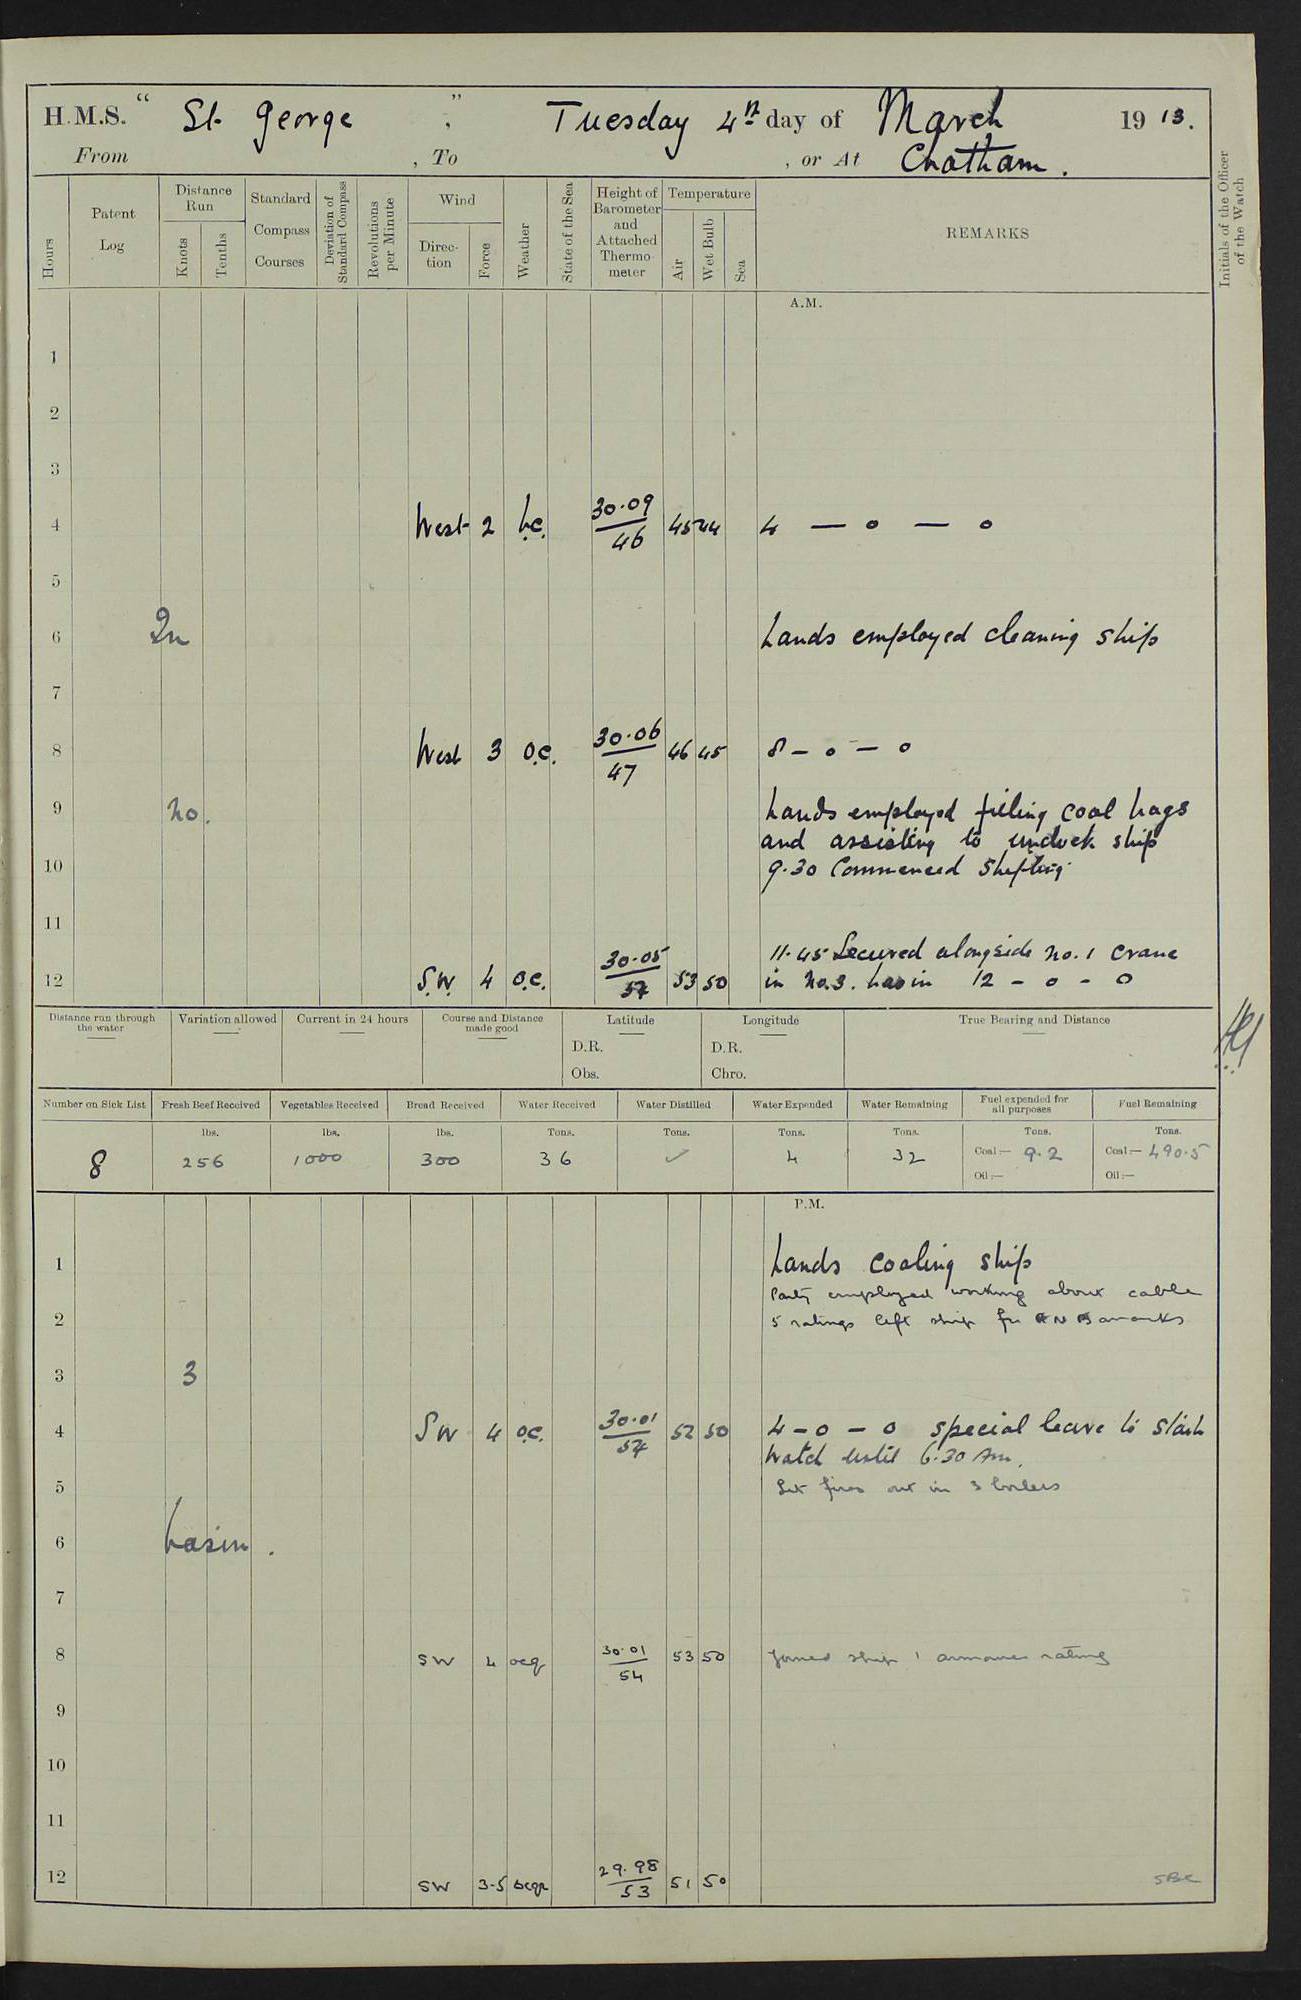 H.M.S. " St. George " Tuesday 4th day of March 1913.
From , To , or At Chatham.
Hours
Patent Log
Distance Run
Knots
Tenths
Standard Compass Courses
Deviation of Standard Compass
Revolutions per Minute
Wind
Direction
Force
Weather
State of the Sea
Height of Barometer and Attached Thermometer
Temperature
Air
Wet Bulb
Sea
REMARKS
Initials of the Officer of the Watch
A.M.
1
2
3
4 West 2 b.c. 30.09 / 46 45 44 4 — o — o
5
6 In Hands employed cleaning ship
7
8 West 3 o.c. 30.06 / 47 46 45 8 – o – o
9 No. Hands employed filling coal bags
and assisting to undock ship
10 9.30 Commenced Shifting
11
11.45 Secured alongside No. 1 Crane
12 S.W. 4 o.c. 30.05 / 54 53 50 in No.3. basin 12 – o – o
Distance run through the water
Variation allowed
Current in 24 hours
Course and Distance made good
Latitude
D.R.
Obs.
Longitude
D.R.
Chro.
True Bearing and Distance
Number on Sick List
Fresh Beef Received
Vegetables Received
Bread Received
Water Received
Water Distilled
Water Expended
Water Remaining
Fuel expended for all purposes
Fuel Remaining
lbs. lbs. lbs. Tons. Tons. Tons. Tons. Tons. Tons.
8 256 1000 300 36 ✓ 4 32 Coal:— 9.2 Coal:— 490.5
Oil:— Oil:—
P.M.
1 Hands coaling ship
Party employed working about cable
2 5 ratings left ship for RN Barracks
3 3
4 SW 4 o.c. 30.01 / 54 52 50 4 – o – o special leave to Starb
Watch until 6.30 Am.
5 Let fires out in 3 boilers
6 basin.
7
8 SW 4 ocq 30.01 / 54 53 50 Joined ship 1 armourer rating
9
10
11
12 SW 3-5 ocqr 29.98 / 53 51 50